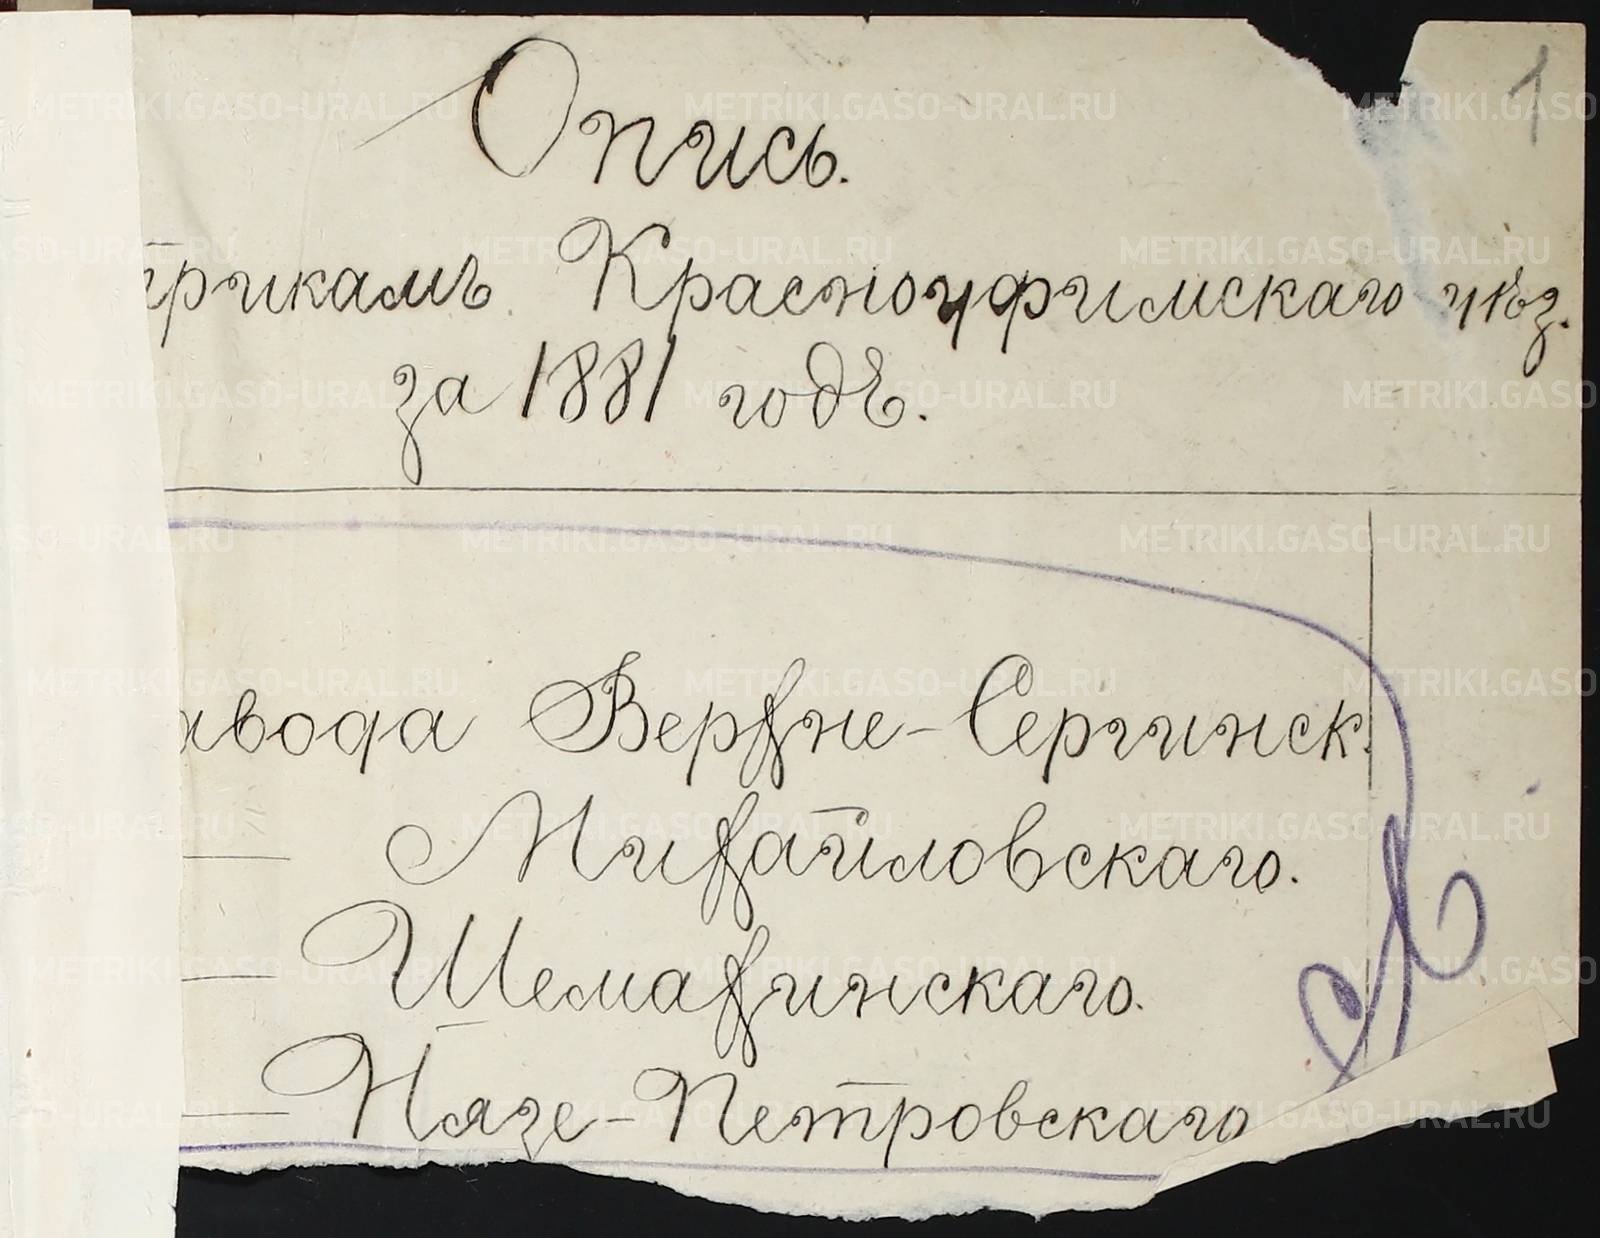 1
Опись.
трикамъ Красноуфимскаго уѣз.
за 1881 годъ.
авода Верхне-Сергинск.
Михайловскаго.
Шемахинскаго.
Нязе-Петровскаго
METRIKI.GASO-URAL.RU